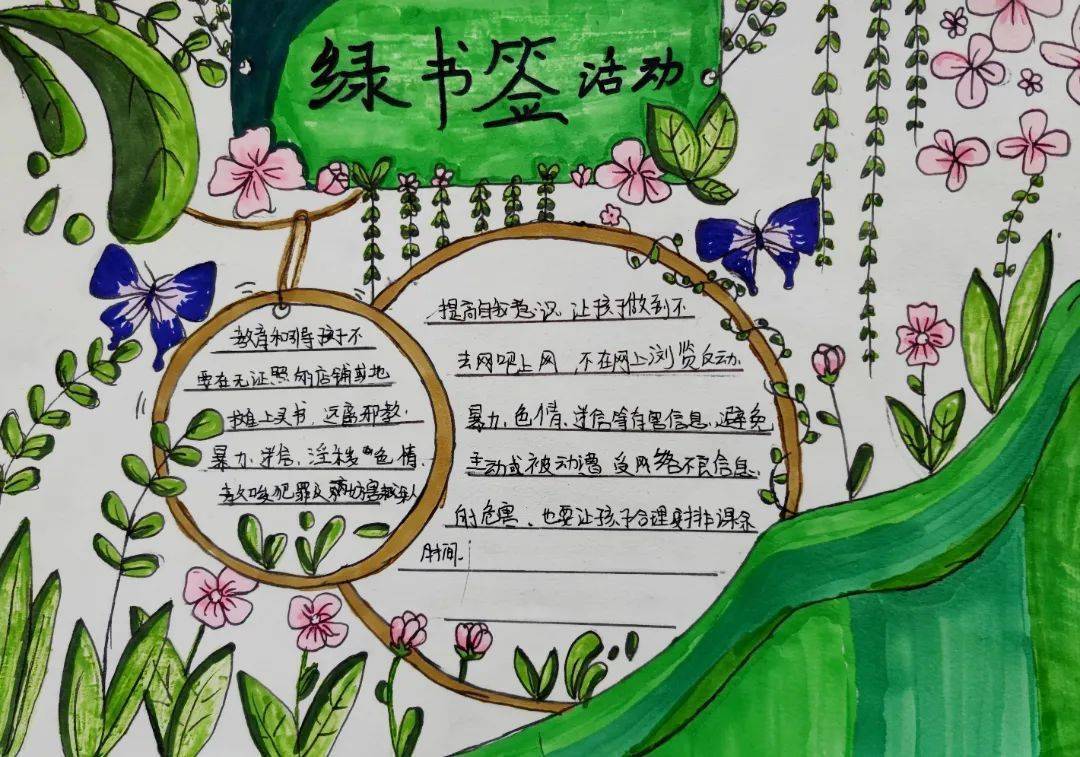 绿书签活动
教育和引导孩子不
要在无证照的店铺或地
摊上买书，远离邪教，
暴力、迷信、淫秽色情、
教唆犯罪及
提高自我意识 让孩子做到不
去网吧上网，不在网上浏览反动、
暴力、色情、迷信等有害信息，避免
主动或被动遭受网络不良信息
的危害、也要让孩子合理安排课余
时间。